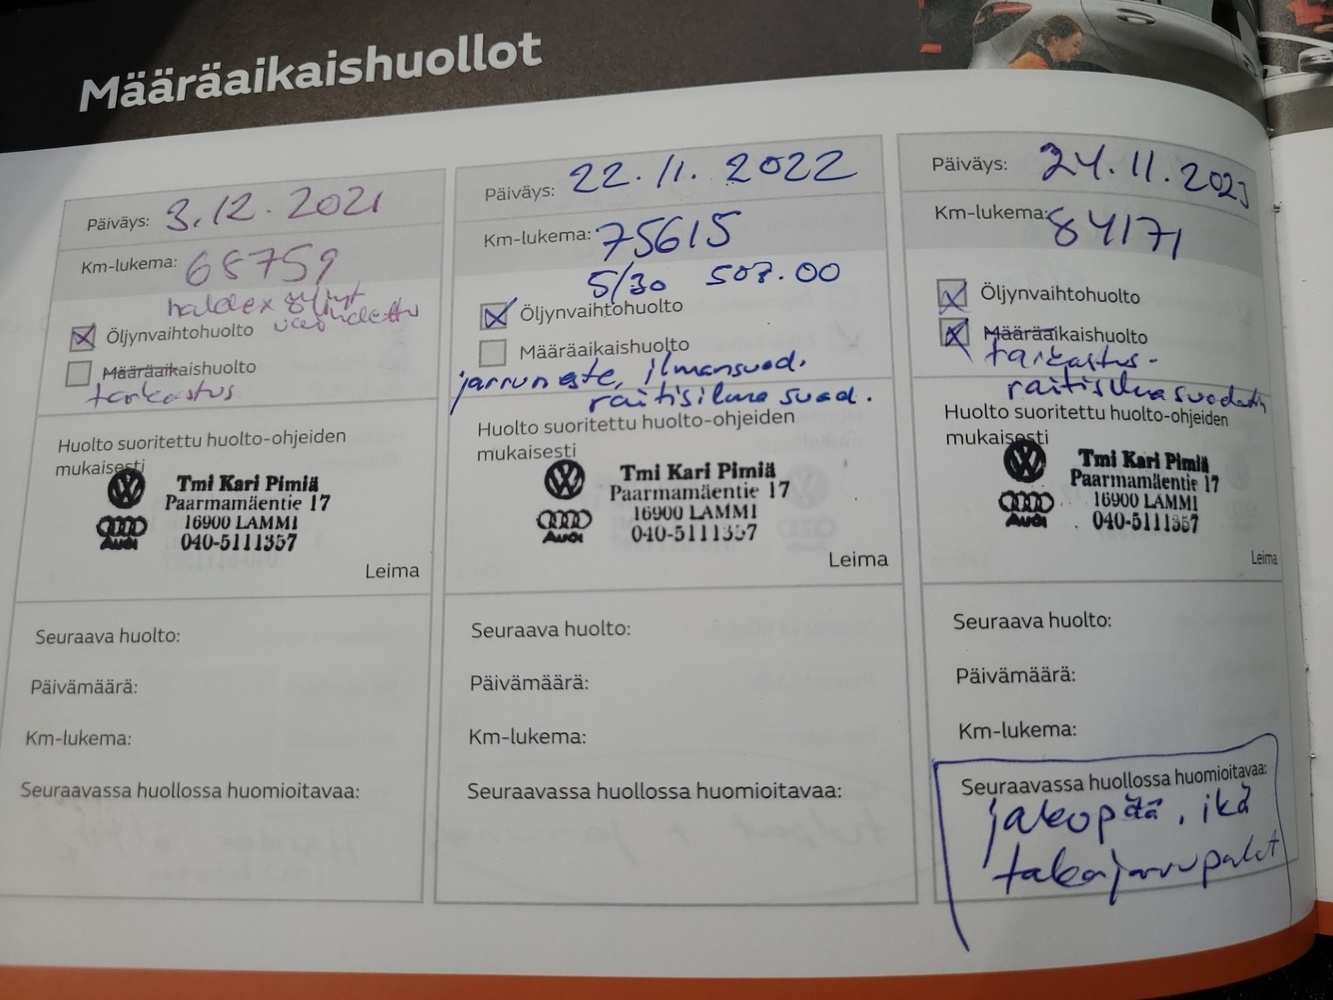 Määräaikaishuollot
Päiväys: 3.12.2021
Km-lukema: 68759
haldex öljyt
vaihdettu
Öljynvaihtohuolto
Määräaikaishuolto
tarkastus
Huolto suoritettu huolto-ohjeiden
mukaisesti
Tmi Kari Pimiä
Paarmamäentie 17
16900 LAMMI
040-5111357
Audi
Leima
Seuraava huolto:
Päivämäärä:
Km-lukema:
Seuraavassa huollossa huomioitavaa:
Päiväys: 22.11.2022
Km-lukema: 75615
5/30 507.00
Öljynvaihtohuolto
Määräaikaishuolto
jarruneste, ilmansuod.
raitisilma suod.
Huolto suoritettu huolto-ohjeiden
mukaisesti
Tmi Kari Pimiä
Paarmamäentie 17
16900 LAMMI
040-5111357
Audi
Leima
Seuraava huolto:
Päivämäärä:
Km-lukema:
Seuraavassa huollossa huomioitavaa:
Päiväys: 24.11.2023
Km-lukema: 84171
Öljynvaihtohuolto
Määräaikaishuolto
tarkastus-
raitisilmasuodatin
Huolto suoritettu huolto-ohjeiden
mukaisesti
Tmi Kari Pimiä
Paarmamäentie 17
16900 LAMMI
040-5111357
Audi
Leima
Seuraava huolto:
Päivämäärä:
Km-lukema:
Seuraavassa huollossa huomioitavaa:
jakopää, ikä
takajarrupalat